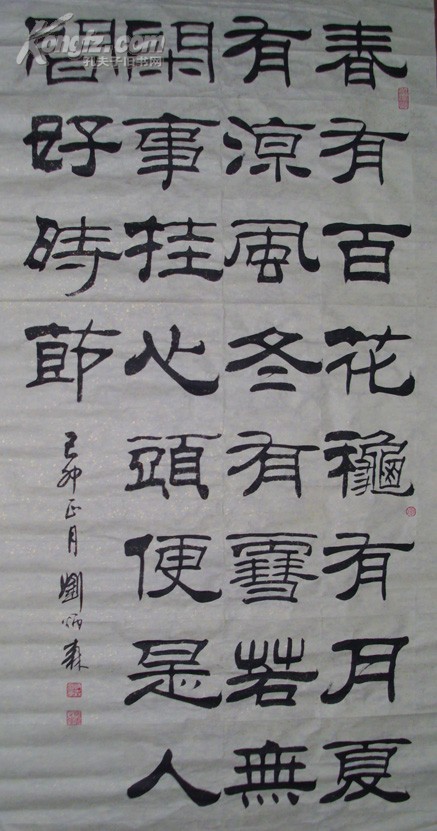 春有百花龝有月夏
有涼風冬有雪若無
閑事挂心頭便是人
間好時節
己卯正月劉炳森
Kongfz.com
孔夫子旧书网